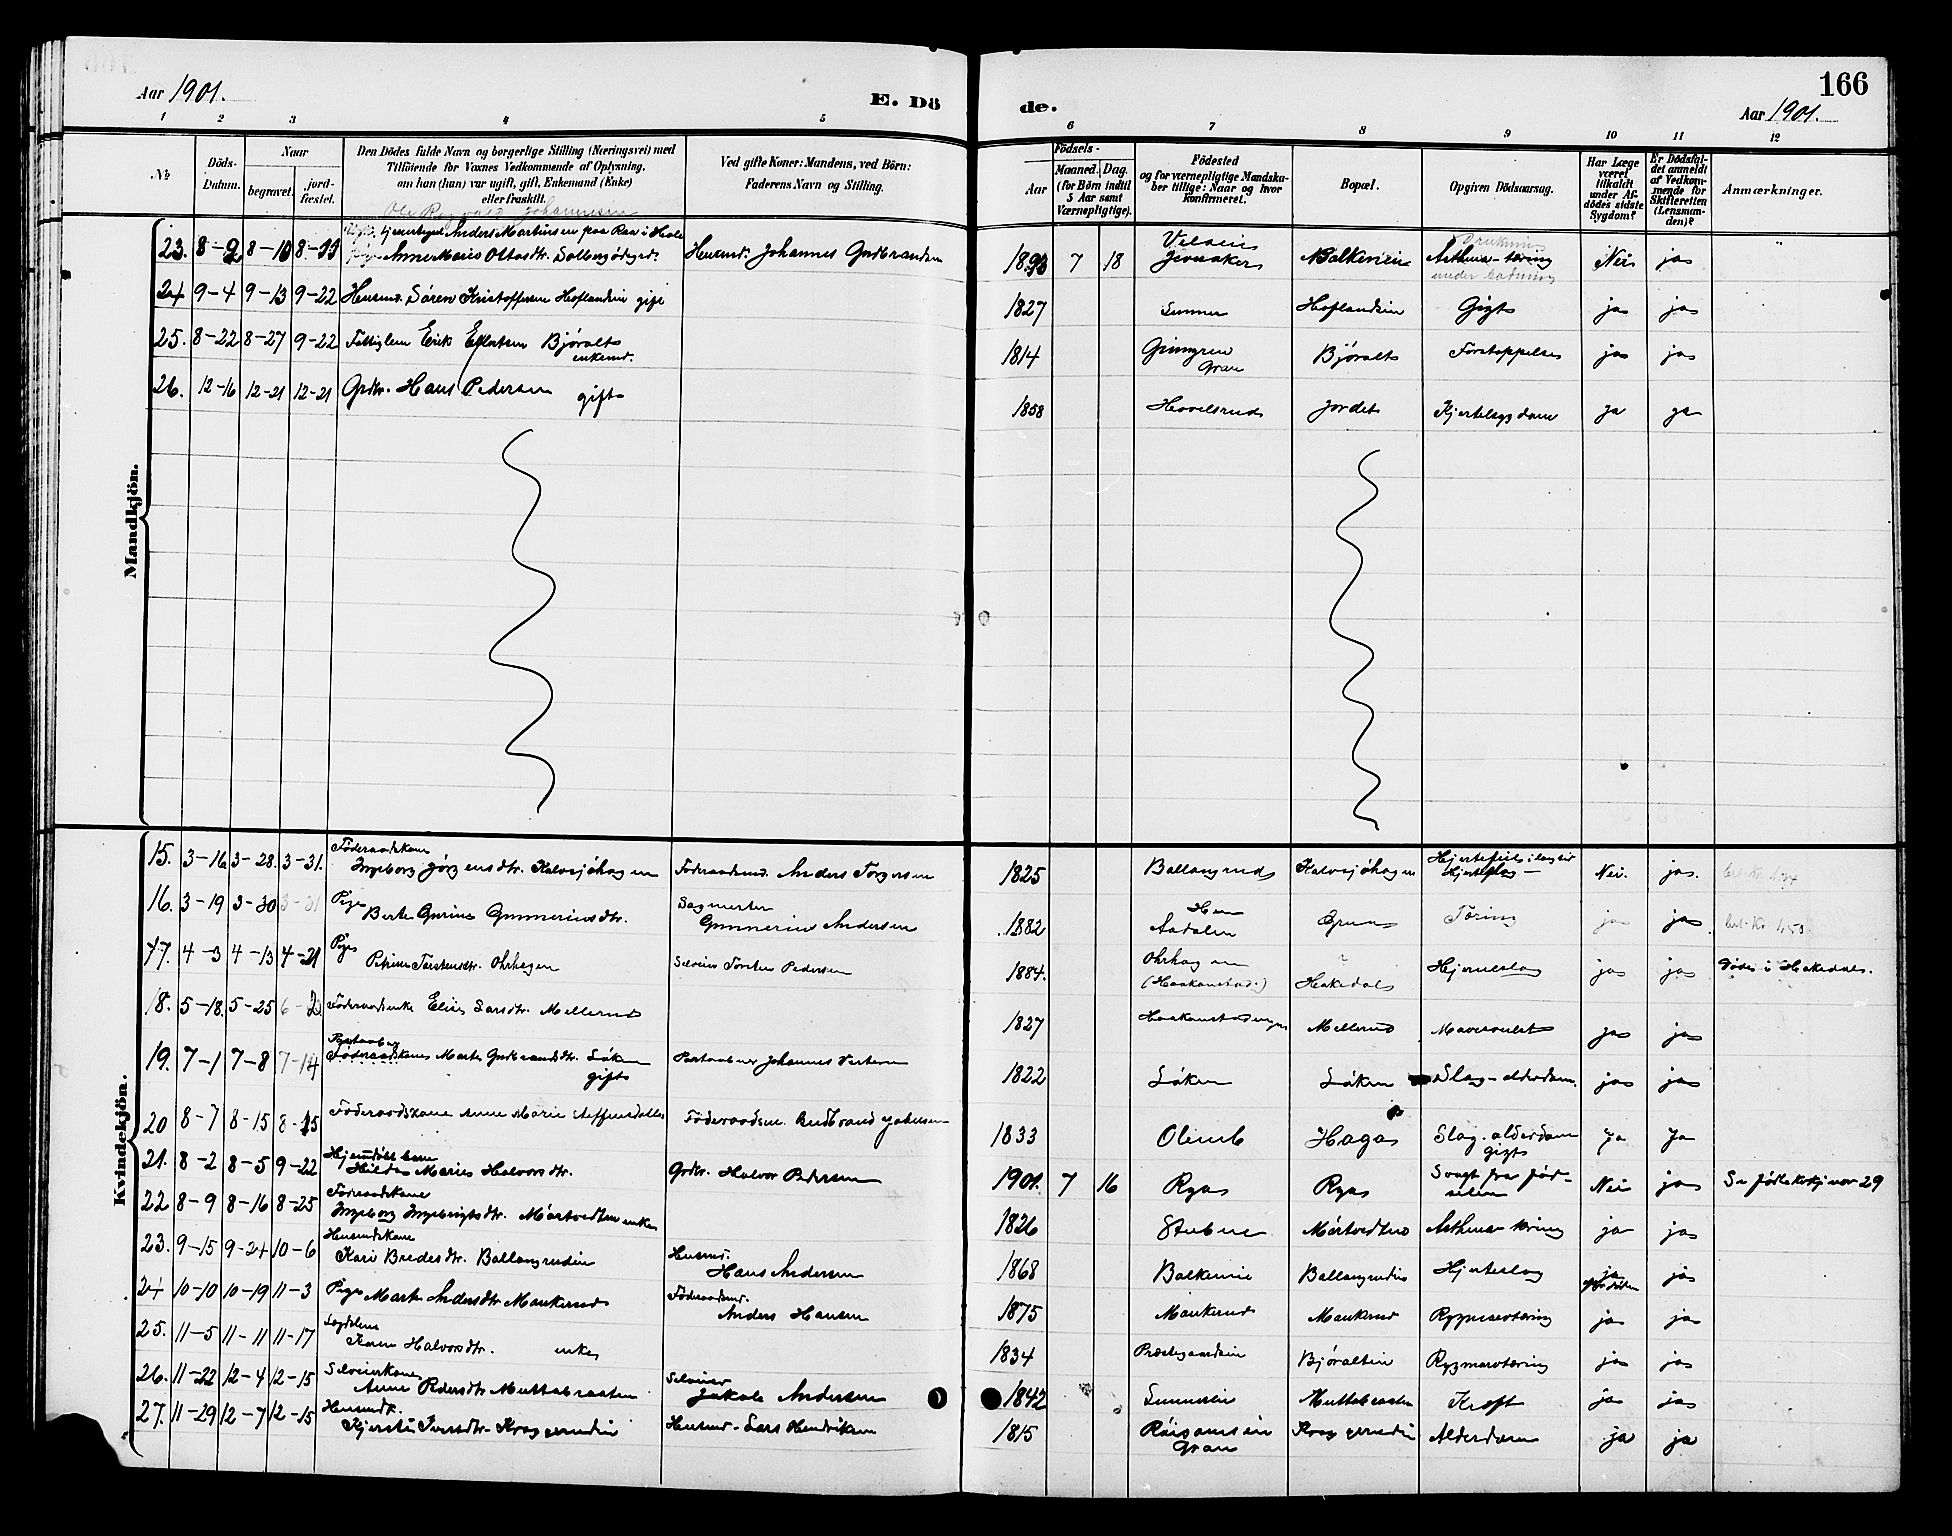 166
Aar 1901.
E. Dö
de.
Aar 1901.
1 2 3 4 5 6 7 8 9 10 11 12
No
Döds-Datum.
Naar
begravet.
jord-fæstet.
Den Dödes fulde Navn og borgerlige Stilling (Næringsvei) med
Tilföiende for Voxnes Vedkommende af Oplysning,
om hun (han) var ugift, gift, Enkemand (Enke)
eller fraskilt.
Ved gifte Koner: Mandens, ved Börn:
Faderens Navn og Stilling.
Födsels-
Aar
Maaned. Dag.
(for Börn indtil
5 Aar samt
Værnepligtige).
Födested
og for værnepligtige Mandska-
ber tillige: Naar og hvor
konfirmeret.
Bopæl.
Opgiven Dödsaarsag.
Har Læge
været
tilkaldt
under Af-
dödes sidste
Sygdom?
Er Dödsfal-
det anmeldt
af Vedkom-
mende for
Skifteretten
(Lensman-
den)?
Anmærkninger.
Mandkjön.
Ole Johannesen
23. 8-2 8-10 8-11 Anne Marie Husmd. Johannes Gudbrandsen 1893 7 18 Jevnaker Balkeneie Nei ja
24 9-4 9-13 9-22 Husmd. Sören Kristoffersen Hoflandseie gift 1827 Hoflandseie Gigt ja ja
25. 8-22 8-27 9-22 Fattiglem Erik Björalt enkemd. 1814 Gran Björalt Forstoppelse ja ja
26. 12-16 12-21 12-21 Grdbr. Hans Pedersen gift 1858 Hovelsrud Jordet ja ja
Kvindekjön.
15. 3-16 3-28. 3-31. Föderaadskone Ingeborg Jörgensdtr. Kalvsjöhagen Föderaadsmd. Anders Torgersen 1825 Ballangrud Kalvsjöhagen Hjerteslag Nei. ja.
16. 3-19 3-30 3-31 Pige Berte Gurine Gunneriusdtr. Sagmester Gunnerius Andersen 1882 Aadalen Grua Tæring ja ja
17. 4-3 4-13 4-21 Pige Petrine Torstensdtr. Ohrhagen Selveier Torsten Pedersen 1884. Ohrhagen (Haakenstad.) Hakedal Hjerneslag ja ja Döde i Hakedal.
18. 5-18. 5-25 6-2 Föderaadsenke Elin Larsdtr. Mellerud 1827 Mellerud Mavesvulst ja ja
19. 7-1 7-8 7-14 Föderaadskone Marte Gudbrandsdtr. Löken gift Johannes 1822 Löken Löken Slag-alderdom. ja ja
20 8-7 8-15 8-25 Föderaadskone Anne Marie Steffensdatter Föderaadsm. Gudbrand Jakobsen 1833 Olimb Haga Slag. alderdom gigt Ja Ja
21. 8-2 8-5 9-22 Hjemdöbt barn Hilda Marie Halvorsdtr. Grdbr. Halvor Pedersen 1901. 7 16 Rya Rya Svagt fra födselen Nei ja
22 8-9 8-16 8-25 Föderaadskone Ingeborg Ingebrigtsdtr. Mörtvedten enke 1826 Stubene Mörtvedten Asthma-tæring ja ja
23. 9-15 9-24 10-6 Husmdskone Kari Bredesdtr. Ballangrudeie Husmd. Hans Andersen 1868 Balkeneie Ballangrudeie Hjerteslag ja ja
24 10-10 10-19 11-3 Pige Marte Andersdtr Maukerud Föderaadsmd. Anders Hansen 1875 Maukerud Maukerud Rygmarvtæring ja ja
25. 11-5 11-11 11-17 Karen Halvorsdtr. enke 1834 Præstegaardseie Björalteie Rygmarvtæring ja ja
26. 11-22 12-4 12-15 Selveierkone Anne Pedersdtr Muttabraaten Selveier Jakob Andersen 1842 Muttabraaten Kræft ja ja
27. 11-29 12-7 12-15 Husmdk. Kjersti Iversdtr. Kragerudeie Husmd. Lars Hendriksen 1815 Gran Kragerudeie Alderdom ja ja